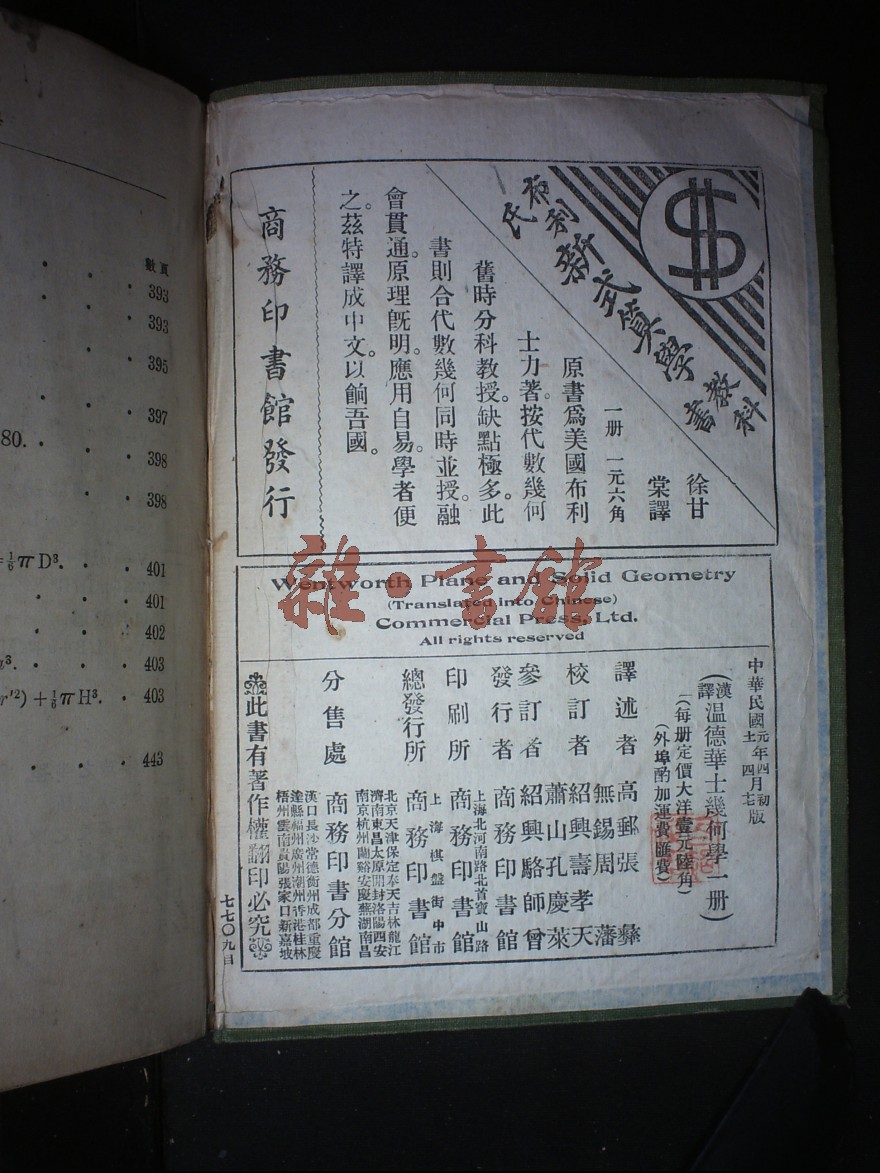 數頁
393
393
395
397
80.
398
398
=⅙πD³.
401
401
402
403
r'²)+⅙πH³.
403
443
布利氏
新式算學
教科書
徐甘棠譯
一册 一元六角
原書爲美國布利
士力著。按代數幾何
舊時分科教授。缺點極多。此
書則合代數幾何同時並授。融
會貫通。原理旣明。應用自易。學者便
之。茲特譯成中文。以餉吾國。
商務印書館發行
Wentworth Plane and Solid Geometry
(Translated into Chinese)
Commercial Press, Ltd.
All rights reserved
中華民國元年四月初版
漢譯溫德華士幾何學一册
(每册定價大洋壹元陸角)
(外埠酌加運費匯費)
譯述者 高郵張彝
無錫周藩
校訂者 紹興壽孝天
參訂者 蕭山孔慶萊
紹興駱師曾
發行者 商務印書館
上海北河南路北首寶山路
印刷所 商務印書館
上海棋盤街中市
總發行所 商務印書館
北京天津保定奉天吉林龍江
濟南東昌太原開封洛陽西安
南京杭州蘭谿安慶蕪湖南昌
分售處 商務印書分館
漢口長沙常德衡州成都重慶
達縣福州廣州潮州香港桂林
梧州雲南貴陽張家口新嘉坡
此書有著作權翻印必究
七七〇九自
雜·書館